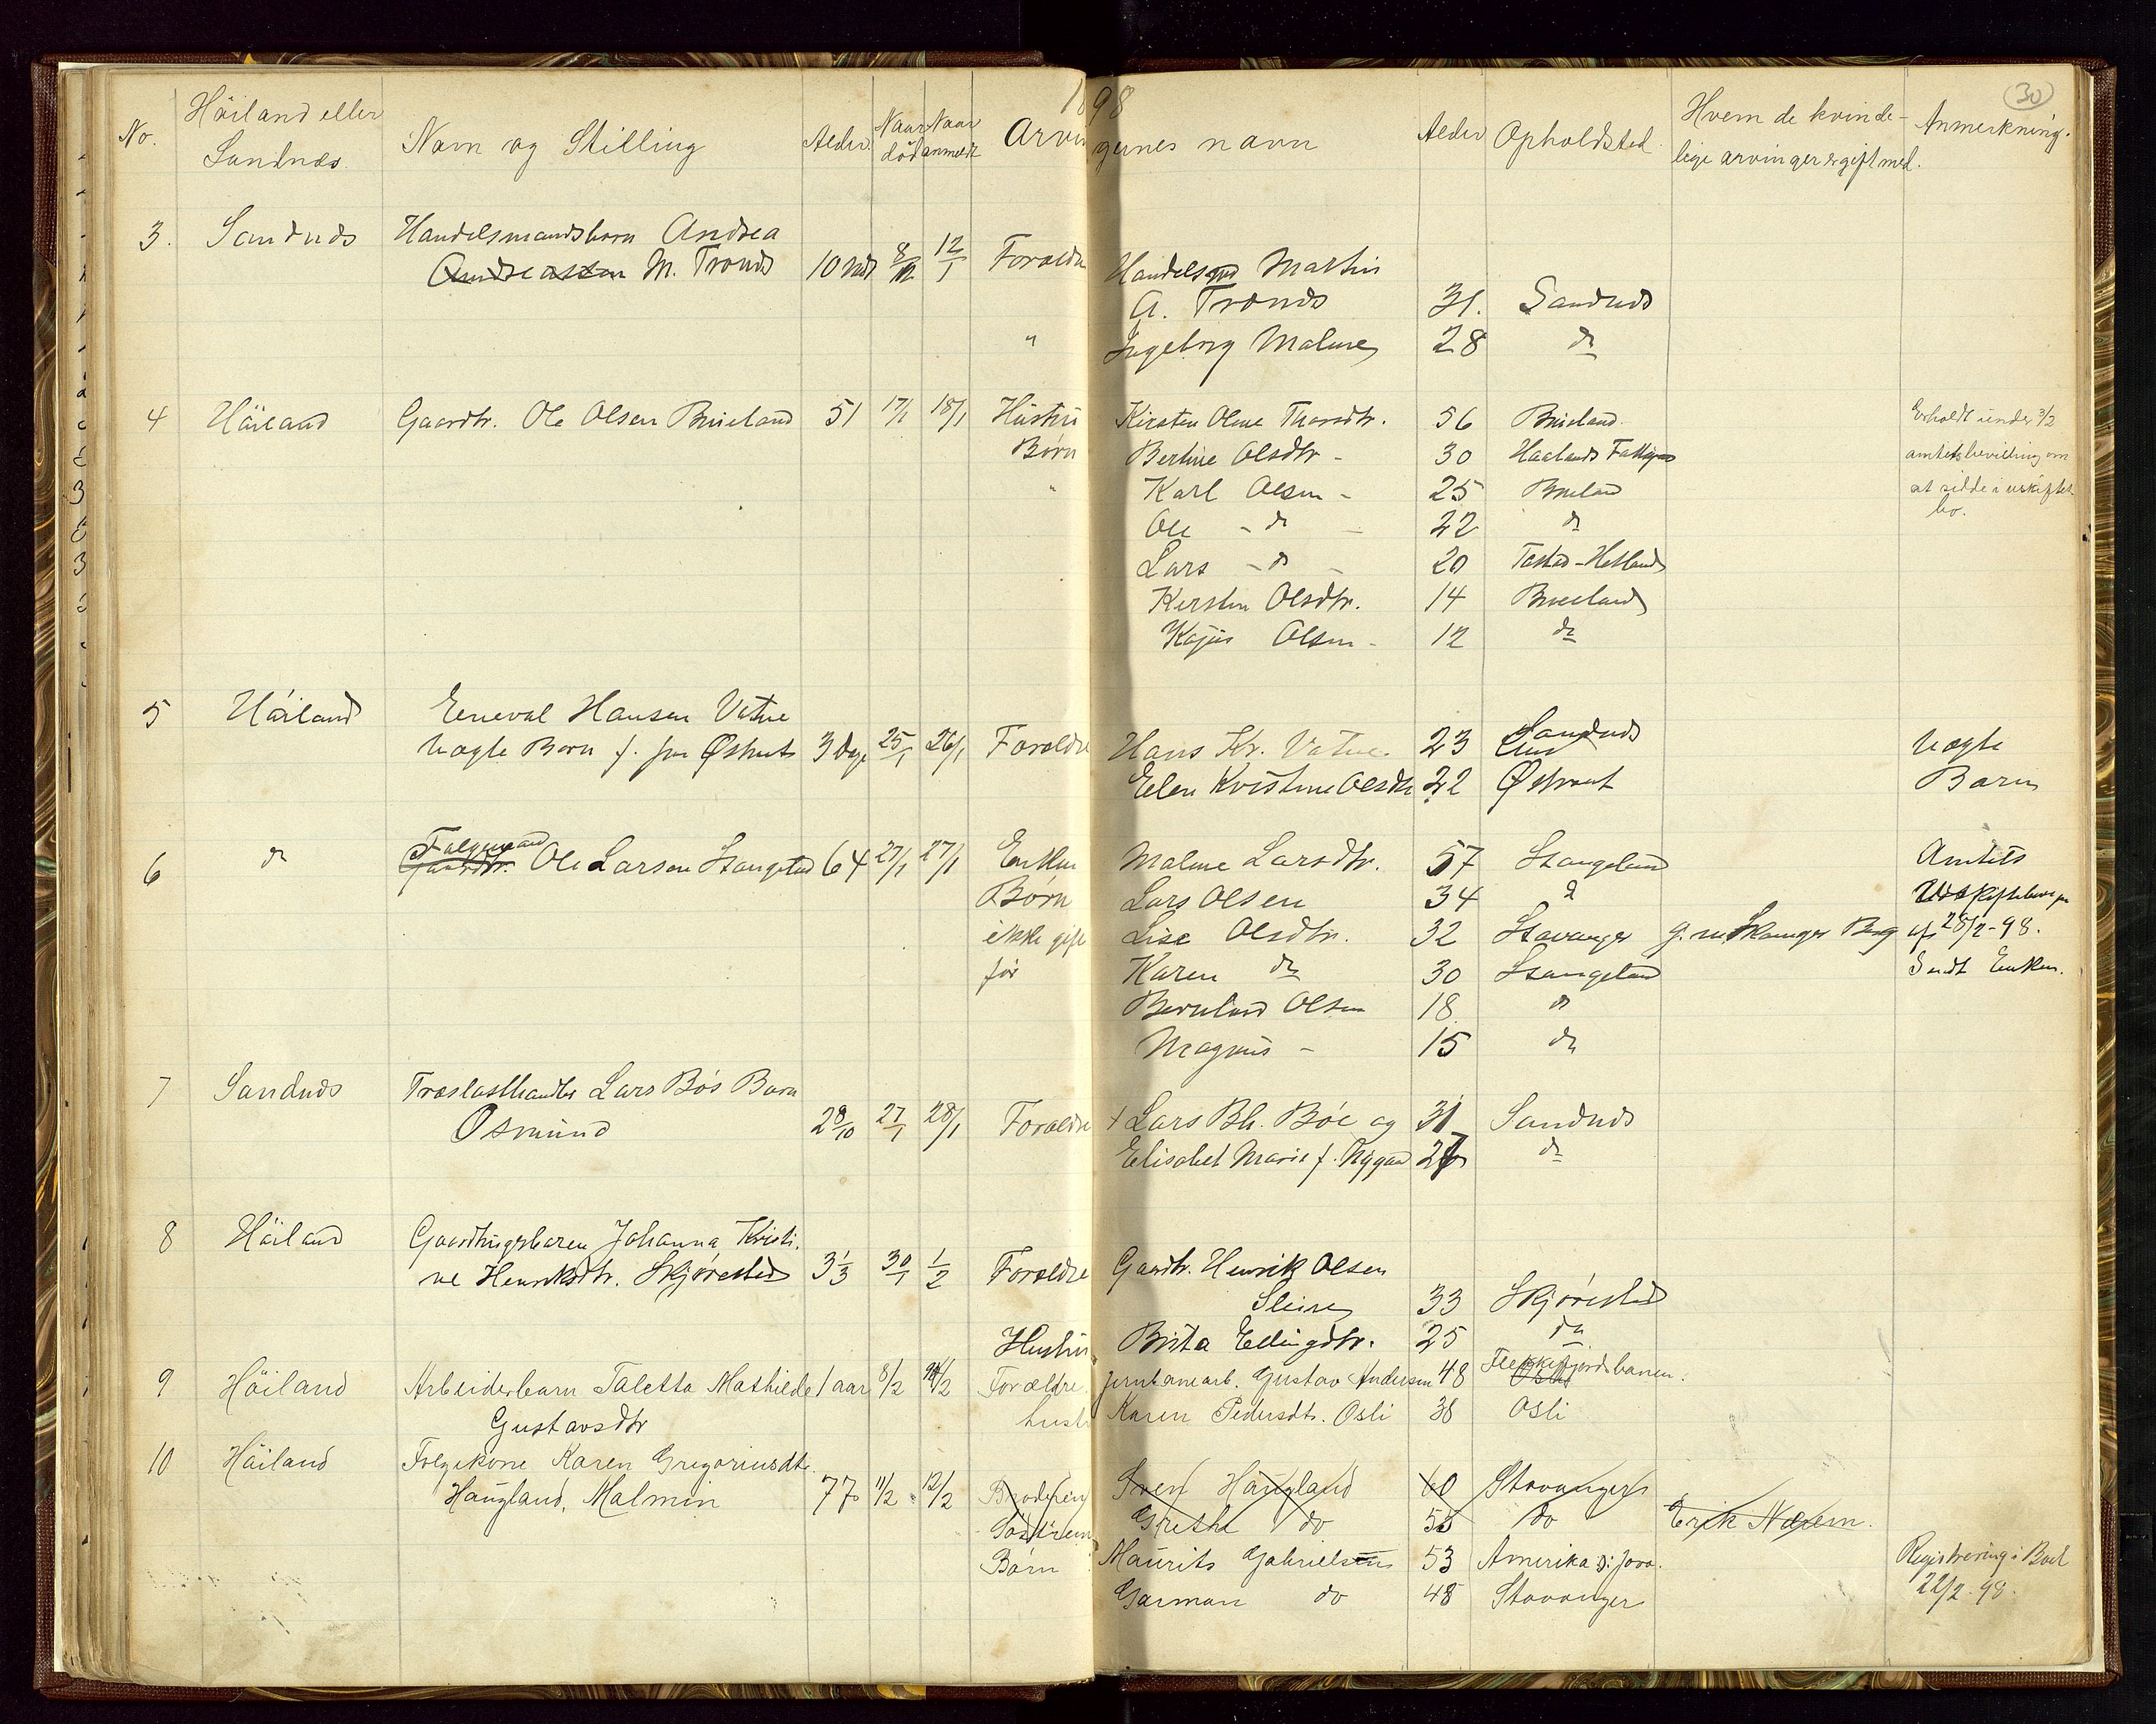 1898
30
No. Höiland eller Sandnæs. Navn og Stilling Alder Naar død Naar anmeldt Arvingernes navn Alder Opholdsted. Hvem de kvindelige arvinger er gift med. Anmerkning.
3. Sandnæs Handelsmandsbarn Andrea
Andreassen M. Tronds 10 8/12 12/1 Forældre Handelsmd Martin
A. Tronds 31. Sandnæs
" Ingeborg Malene 28 do
4 Höiland Gaardbr. Ole Olsen Brueland 51 17/1 18/1 Hustru Kirsten Oline Thorsdtr. 56 Brueland. Erholdt under 3/2
Børn Bertine Olsdtr - 30 Haalands amtets bevilling om
" Karl Olsen - 25 Brueland at sidde i uskiftet
Ole - do - 22 do bo.
Lars - do - 20 Tastad - Hetland
Kirsten Olsdtr. 14 Brueland
Kajus Olsen - 12 do
5 Höiland Eneval Hansen Vatne
uægte Barn f. paa Østraat 3 Dage 25/1 26/1 Forældre Hans Kr. Vatne. 23 Sandnæs uægte
Elen Kristine Olsdtr 22 Østraat Barn
6 do Folgemand Gaardbr. Ole Larsen Stangeland 64 27/1 27/1 Enken Malene Larsdtr. 57 Stangeland Amtets
Børn Lars Olsen 34 do
ikke gift Lise Olsdtr. 32 Stavanger g. m. Berg af 28/2-98.
før Karen do 30 Stangeland Sendt Enken.
Bernhard Olsen 18 do
Magnus - 15 do
7 Sandnæs Trælasthandler Lars Bøs Barn
Osmund 2 8/10 27/1 28/1 Forældre + Lars Bh. Bøe og 31 Sandnæs
Elisabet Marie f. Nygaard 27 do
8 Höiland Gaardbrugerbaren Johanna Kristi-
ne Henriksdtr. Skjørestad 3 1/3 30/1 1/2 Forældre Gaardbr. Henrik Olsen
Sleire 33 Skjørestad
Hustru Brita Ellingsdtr. 25 do
9 Höiland Arbeiderbarn Taletta Mathilde 1 aar 8/2 /2 Forældre. Jernbanearb. Gustav Andersen 48 Flekkefjordsbanen.
Gustavsdtr hustr Karen Pedersdtr. Osli 38 Osli
10 Höiland Folgekone Karen Gregoriusdtr.
Haugland, Malmin 77 11/2 12/2 Broderen Sven Haugland 60 Stavanger
Søsteren Grethe do 55 do Erik Næsem.
Børn Maurits Gabrielsen 53 Amerika Jova. Registrering i Boet
Garman do 48 Stavanger 22/2-98.